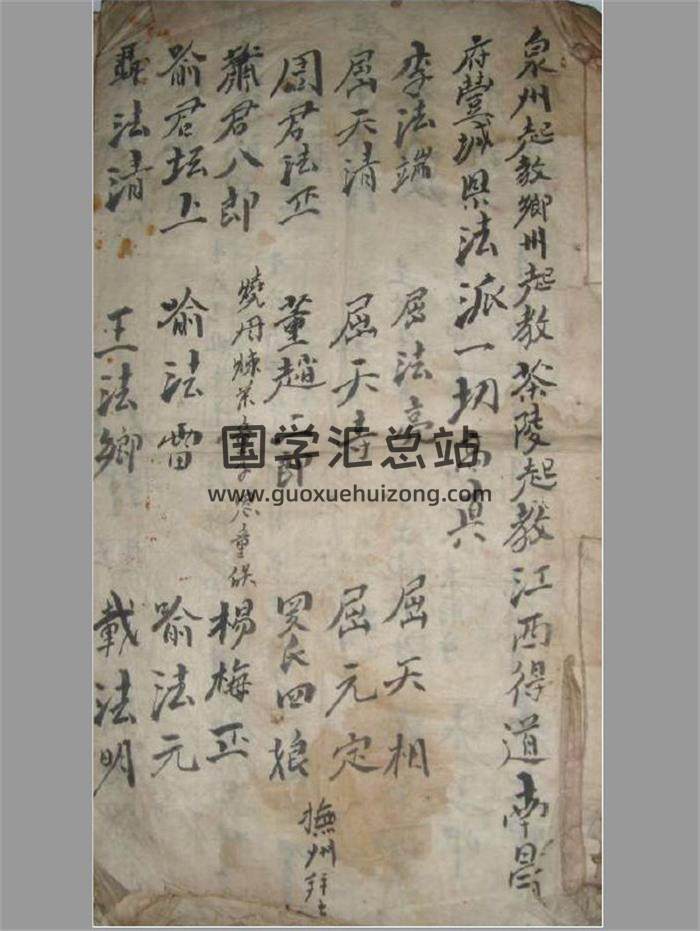 泉州起教鄉州起教茶陵起教江西得道南昌
府豐城県法派一切高真
李法端 屈法亮 屈天相
屈天清 屈天壽 屈元定
撫州
周君法正 董趙二郎 罗氏四娘
蕭君八郎 楊梅正
燒丹煉
喻君坛上 喻法雷 喻法元
聶法清 王法鄉 載法明
国学汇总站
www.guoxuehuizong.com